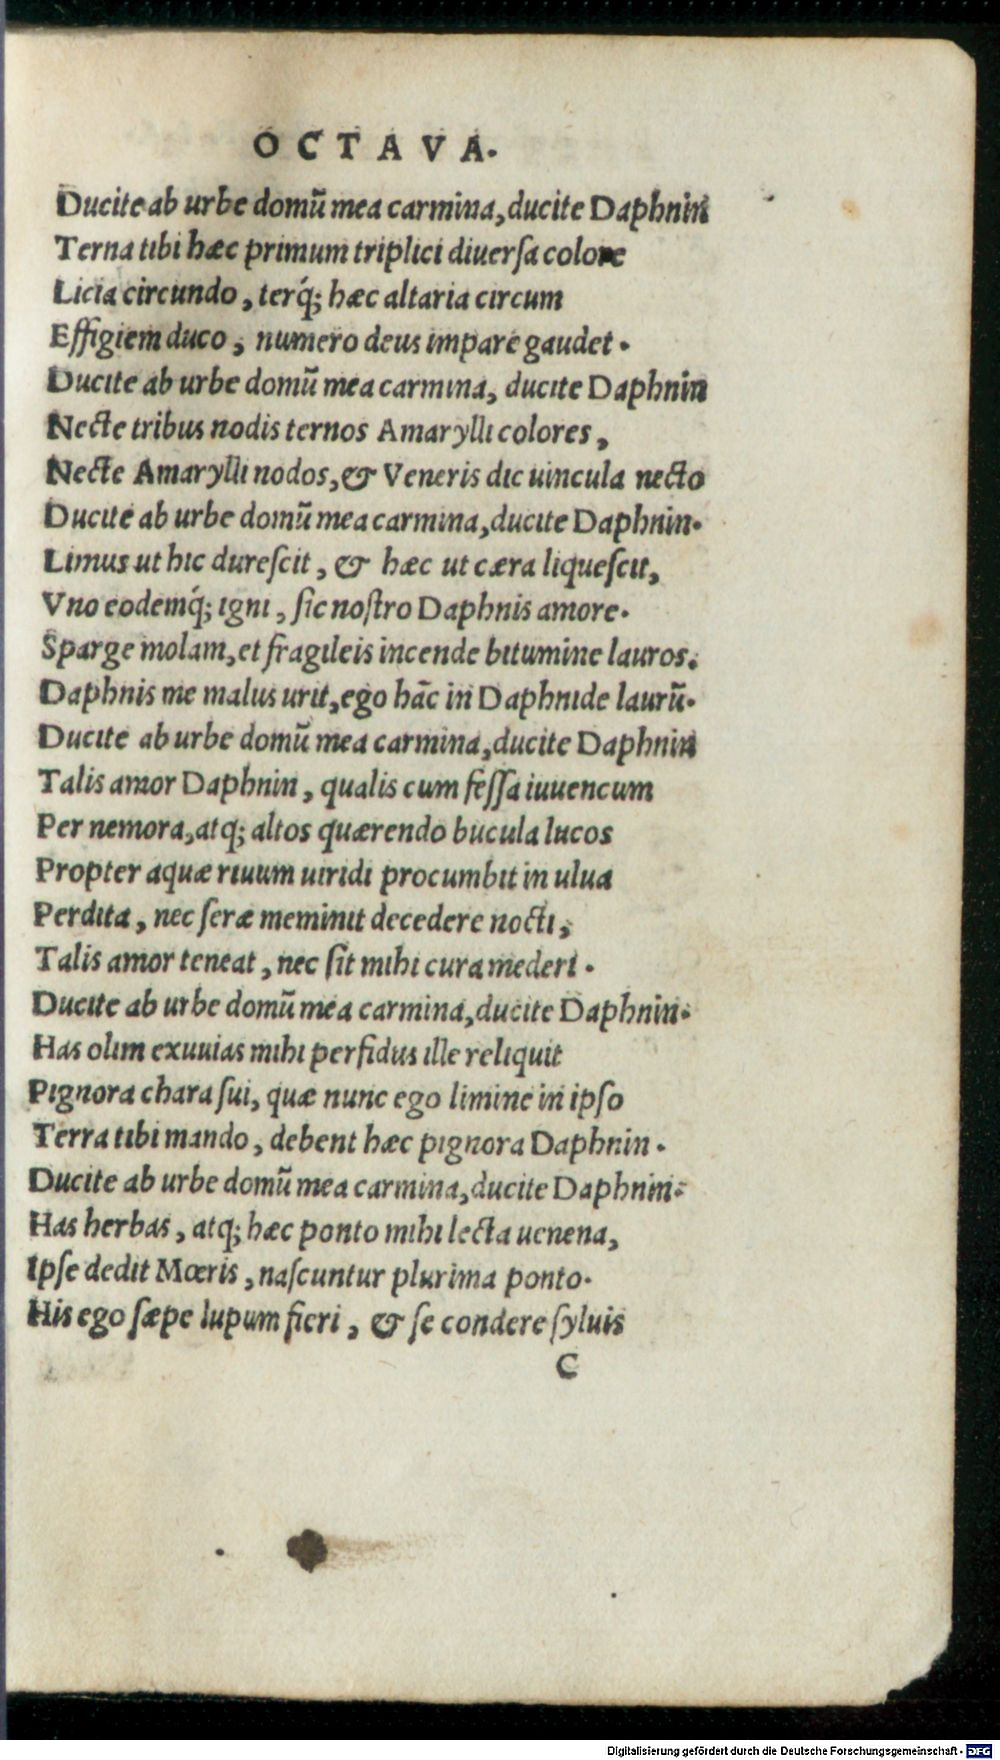 OCTAVA.
Ducite ab urbe domũ mea carmina, ducite Daphnin
Terna tibi hæc primum triplici diuersa colore
Licia circundo, terq́; hæc altaria circum
Effigiem duco, numero deus impare gaudet.
Ducite ab urbe domũ mea carmina, ducite Daphnin
Necte tribus nodis ternos Amarylli colores,
Necte Amarylli nodos, & Veneris dic uincula necto
Ducite ab urbe domũ mea carmina, ducite Daphnin.
Limus ut hic durescit, & hæc ut cæra liquescit,
Vno eodemq́; igni, sic nostro Daphnis amore.
Sparge molam, et fragileis incende bitumine lauros.
Daphnis me malus urit, ego hãc in Daphnide laurũ.
Ducite ab urbe domũ mea carmina, ducite Daphnin
Talis amor Daphnin, qualis cum fessa iuuencum
Per nemora, atq; altos quærendo bucula lucos
Propter aquæ riuum uiridi procumbit in ulua
Perdita, nec seræ meminit decedere nocti,
Talis amor teneat, nec sit mihi cura mederi.
Ducite ab urbe domũ mea carmina, ducite Daphnin.
Has olim exuuias mihi perfidus ille reliquit
Pignora chara sui, quæ nunc ego limine in ipso
Terra tibi mando, debent hæc pignora Daphnin.
Ducite ab urbe domũ mea carmina, ducite Daphnin.
Has herbas, atq; hæc ponto mihi lecta uenena,
Ipse dedit Mœris, nascuntur plurima ponto.
His ego sæpe lupum fieri, & se condere syluis
C
Digitalisierung gefördert durch die Deutsche Forschungsgemeinschaft - DFG